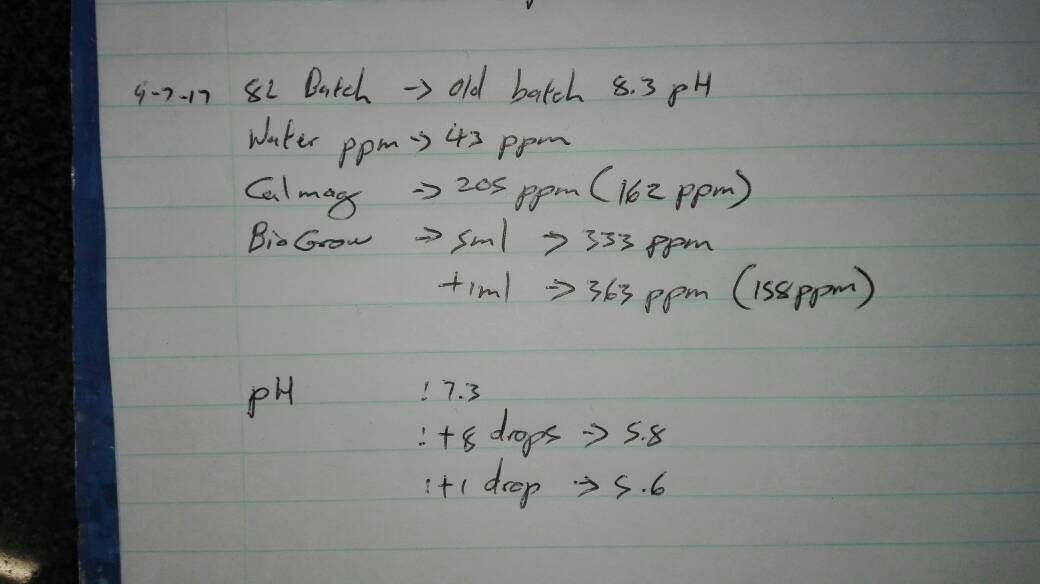 9-7-17 8L Batch → old batch 8.3 pH
Water ppm → 43 ppm
Calmag → 205 ppm (162 ppm)
BioGrow → 5ml → 333 ppm
+1ml → 363 ppm (158ppm)
pH : 7.3
: +8 drops → 5.8
: +1 drop → 5.6